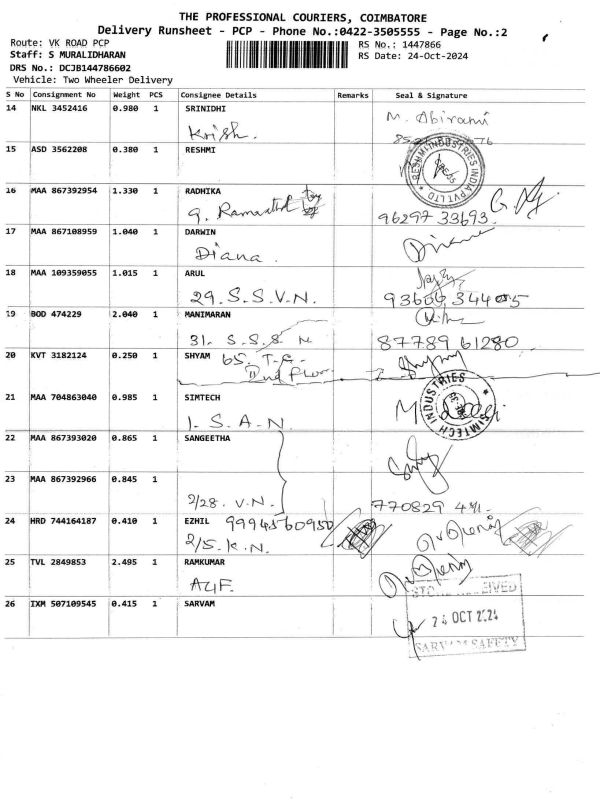 THE PROFESSIONAL COURIERS, COIMBATORE
Delivery Runsheet - PCP - Phone No.:0422-3505555 - Page No.:2
Route: VK ROAD PCP
Staff: S MURALIDHARAN
DRS No.: DCJB144786602
Vehicle: Two Wheeler Delivery
RS No.: 1447866
RS Date: 24-Oct-2024
S No Consignment No Weight PCS Consignee Details Remarks Seal & Signature
14 NKL 3452416 0.980 1 SRINIDHI
Krish. M. Abirami
15 ASD 3562208 0.380 1 RESHMI
RESHMI INDUSTRIES INDIA PVT LTD
16 MAA 867392954 1.330 1 RADHIKA
9. 96297 33693
17 MAA 867108959 1.040 1 DARWIN
Diana. Diana
18 MAA 109359055 1.015 1 ARUL
29. S.S.V.N. 93606 34405
19 BOD 474229 2.040 1 MANIMARAN
31. S.S.S. N 87789 61280
20 KVT 3182124 0.250 1 SHYAM 65. T.G.
2nd floor Shyam
21 MAA 704863040 0.985 1 SIMTECH
1. S.A.N. SIMTECH INDUSTRIES
22 MAA 867393020 0.865 1 SANGEETHA
23 MAA 867392966 0.845 1
2/28. V.N. 770829
24 HRD 744164187 0.410 1 EZHIL 9994560950
2/5. K.N.
25 TVL 2849853 2.495 1 RAMKUMAR
A4F.
26 IXM 507109545 0.415 1 SARVAM
24 OCT 2024
SARVAM SAFETY